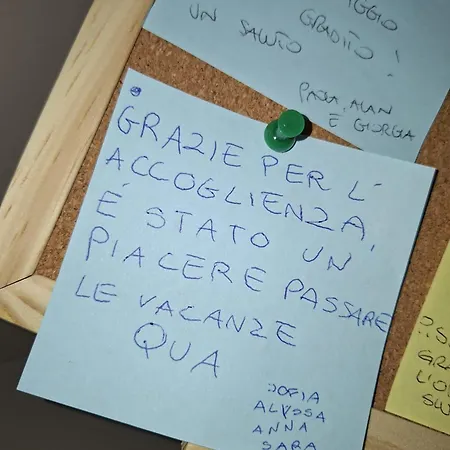 UN SALUTO GRADITO!
PAOLA, ALAN
E GIORGIA
GRAZIE PER L'
ACCOGLIENZA,
É STATO UN
PIACERE PASSARE
LE VACANZE
QUA
SOFIA
ALYSSA
ANNA
SARA